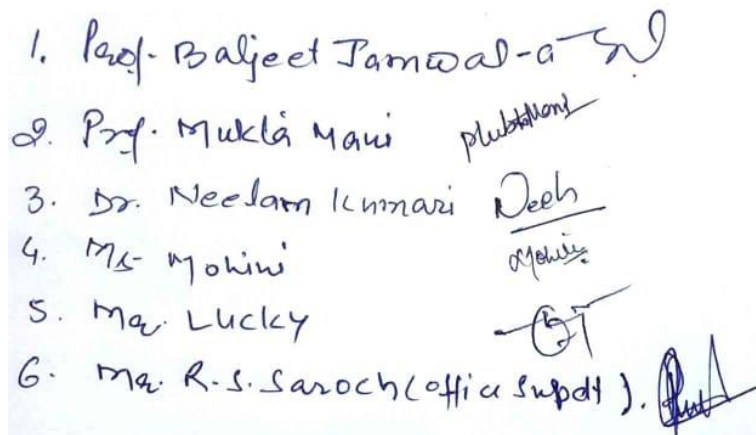 1. Prof. Baljeet Jamwal-a
2. Prof. Mukta Mani MuktaMani
3. Dr. Neelam Kumari Neeh
4. Ms Mohini Mohini
5. Mr. Lucky
6. Mr. R.S. Saroch (office Supdt).